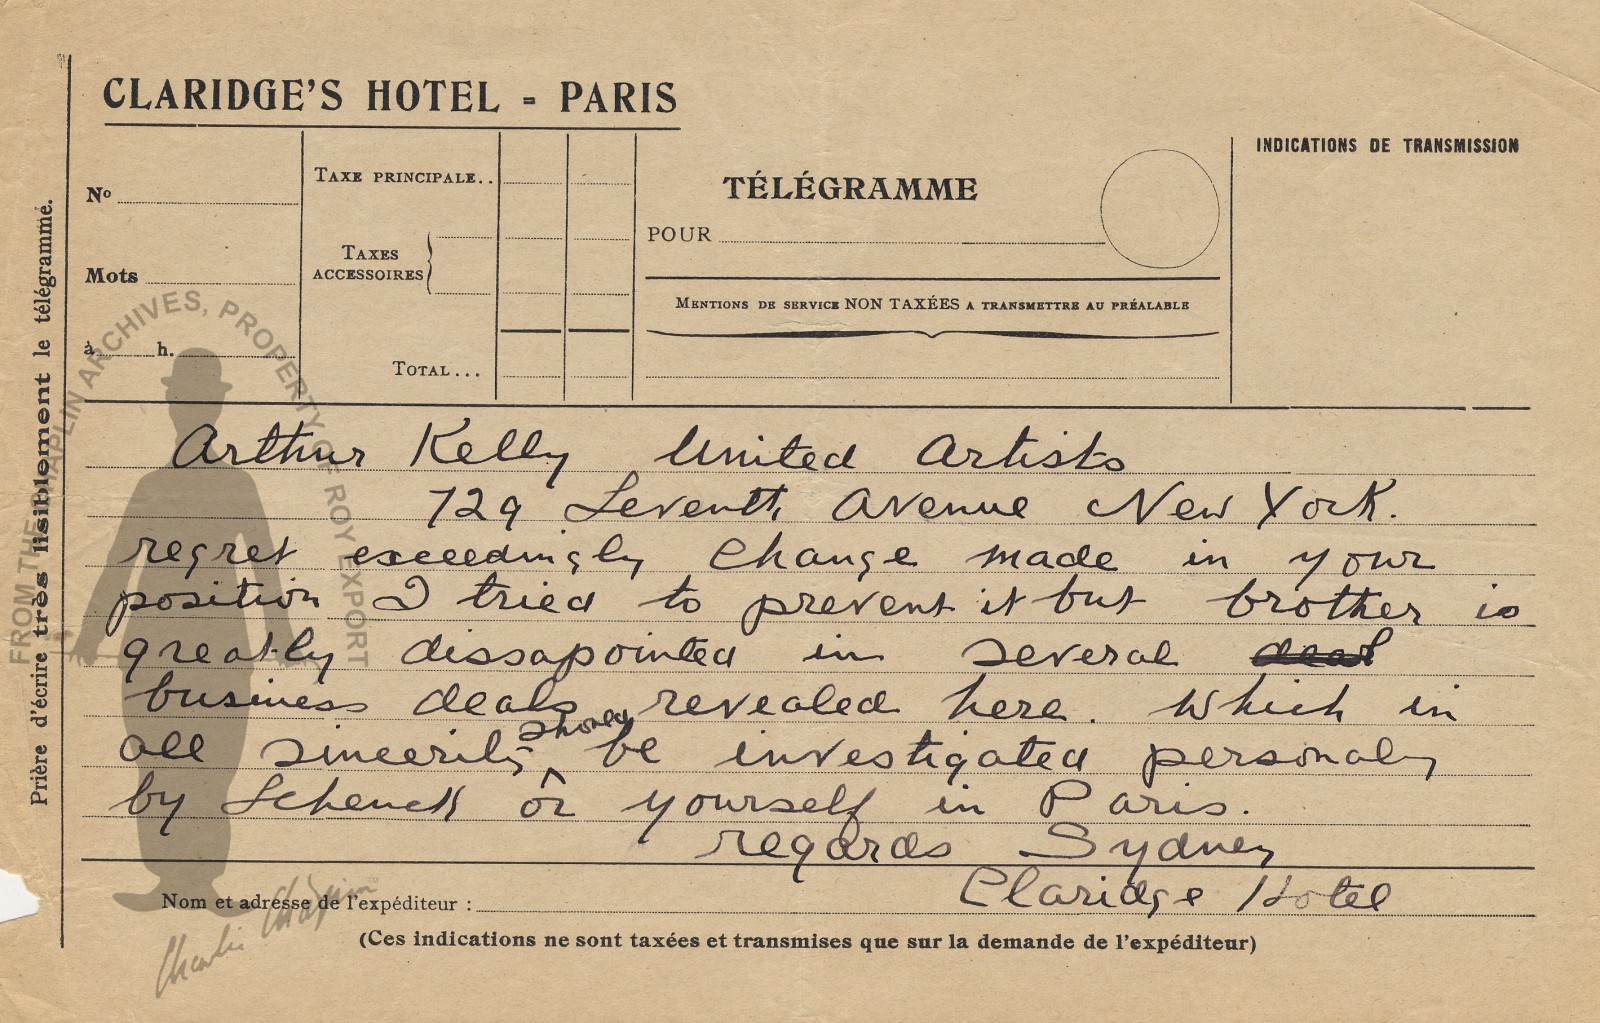 CLARIDGE'S HOTEL = PARIS
INDICATIONS DE TRANSMISSION
Nº
TAXE PRINCIPALE..
TÉLÉGRAMME
POUR
Mots
TAXES
ACCESSOIRES
MENTIONS DE SERVICE NON TAXÉES A TRANSMETTRE AU PRÉALABLE
à h.
TOTAL...
Prière d'écrire très lisiblement le télégramme.
FROM THE CHAPLIN ARCHIVES, PROPERTY OF ROY EXPORT
Arthur Kelly United Artists
729 Seventh Avenue New York.
regret exceedingly change made in your
position I tried to prevent it but brother is
greatly dissapointed in several deal
business deals revealed here. Which in
all sincerily should be investigated personaly
by Schenck or yourself in Paris.
regards Sydney
Nom et adresse de l'expéditeur : Claridge Hotel
(Ces indications ne sont taxées et transmises que sur la demande de l'expéditeur)
Charlie Chaplin